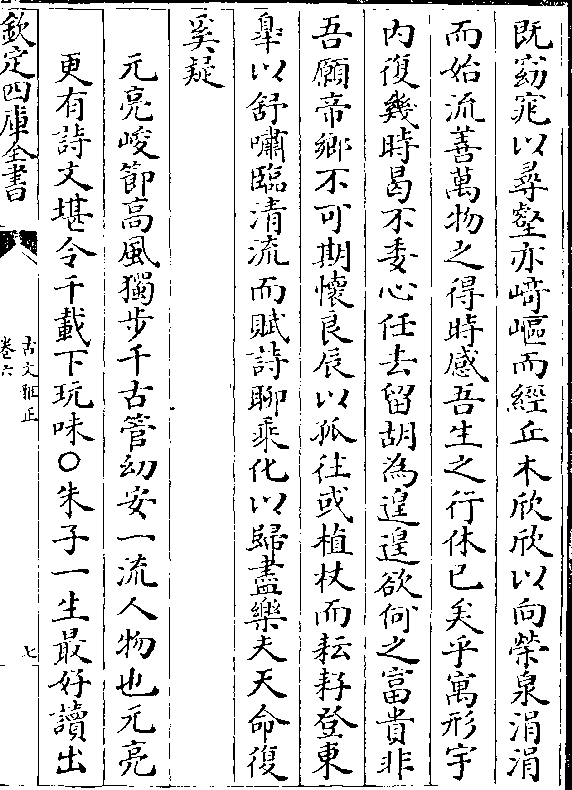 既窈窕以尋壑亦﨑嶇而經丘木欣欣以向榮泉涓涓
而始流善萬物之得時感吾生之行休已矣乎寓形宇
内復幾時曷不委心任去留胡為遑遑欲何之富貴非
吾願帝鄉不可期懷良辰以孤往或植杖而耘耔登東
臯以舒嘯臨清流而賦詩聊乘化以歸盡樂夫天命復
奚疑
元亮峻節高風獨步千古管幼安一流人物也元亮
更有詩文堪令千載下玩味○朱子一生最好讀出
欽定四庫全書
古文雅正
卷六
七